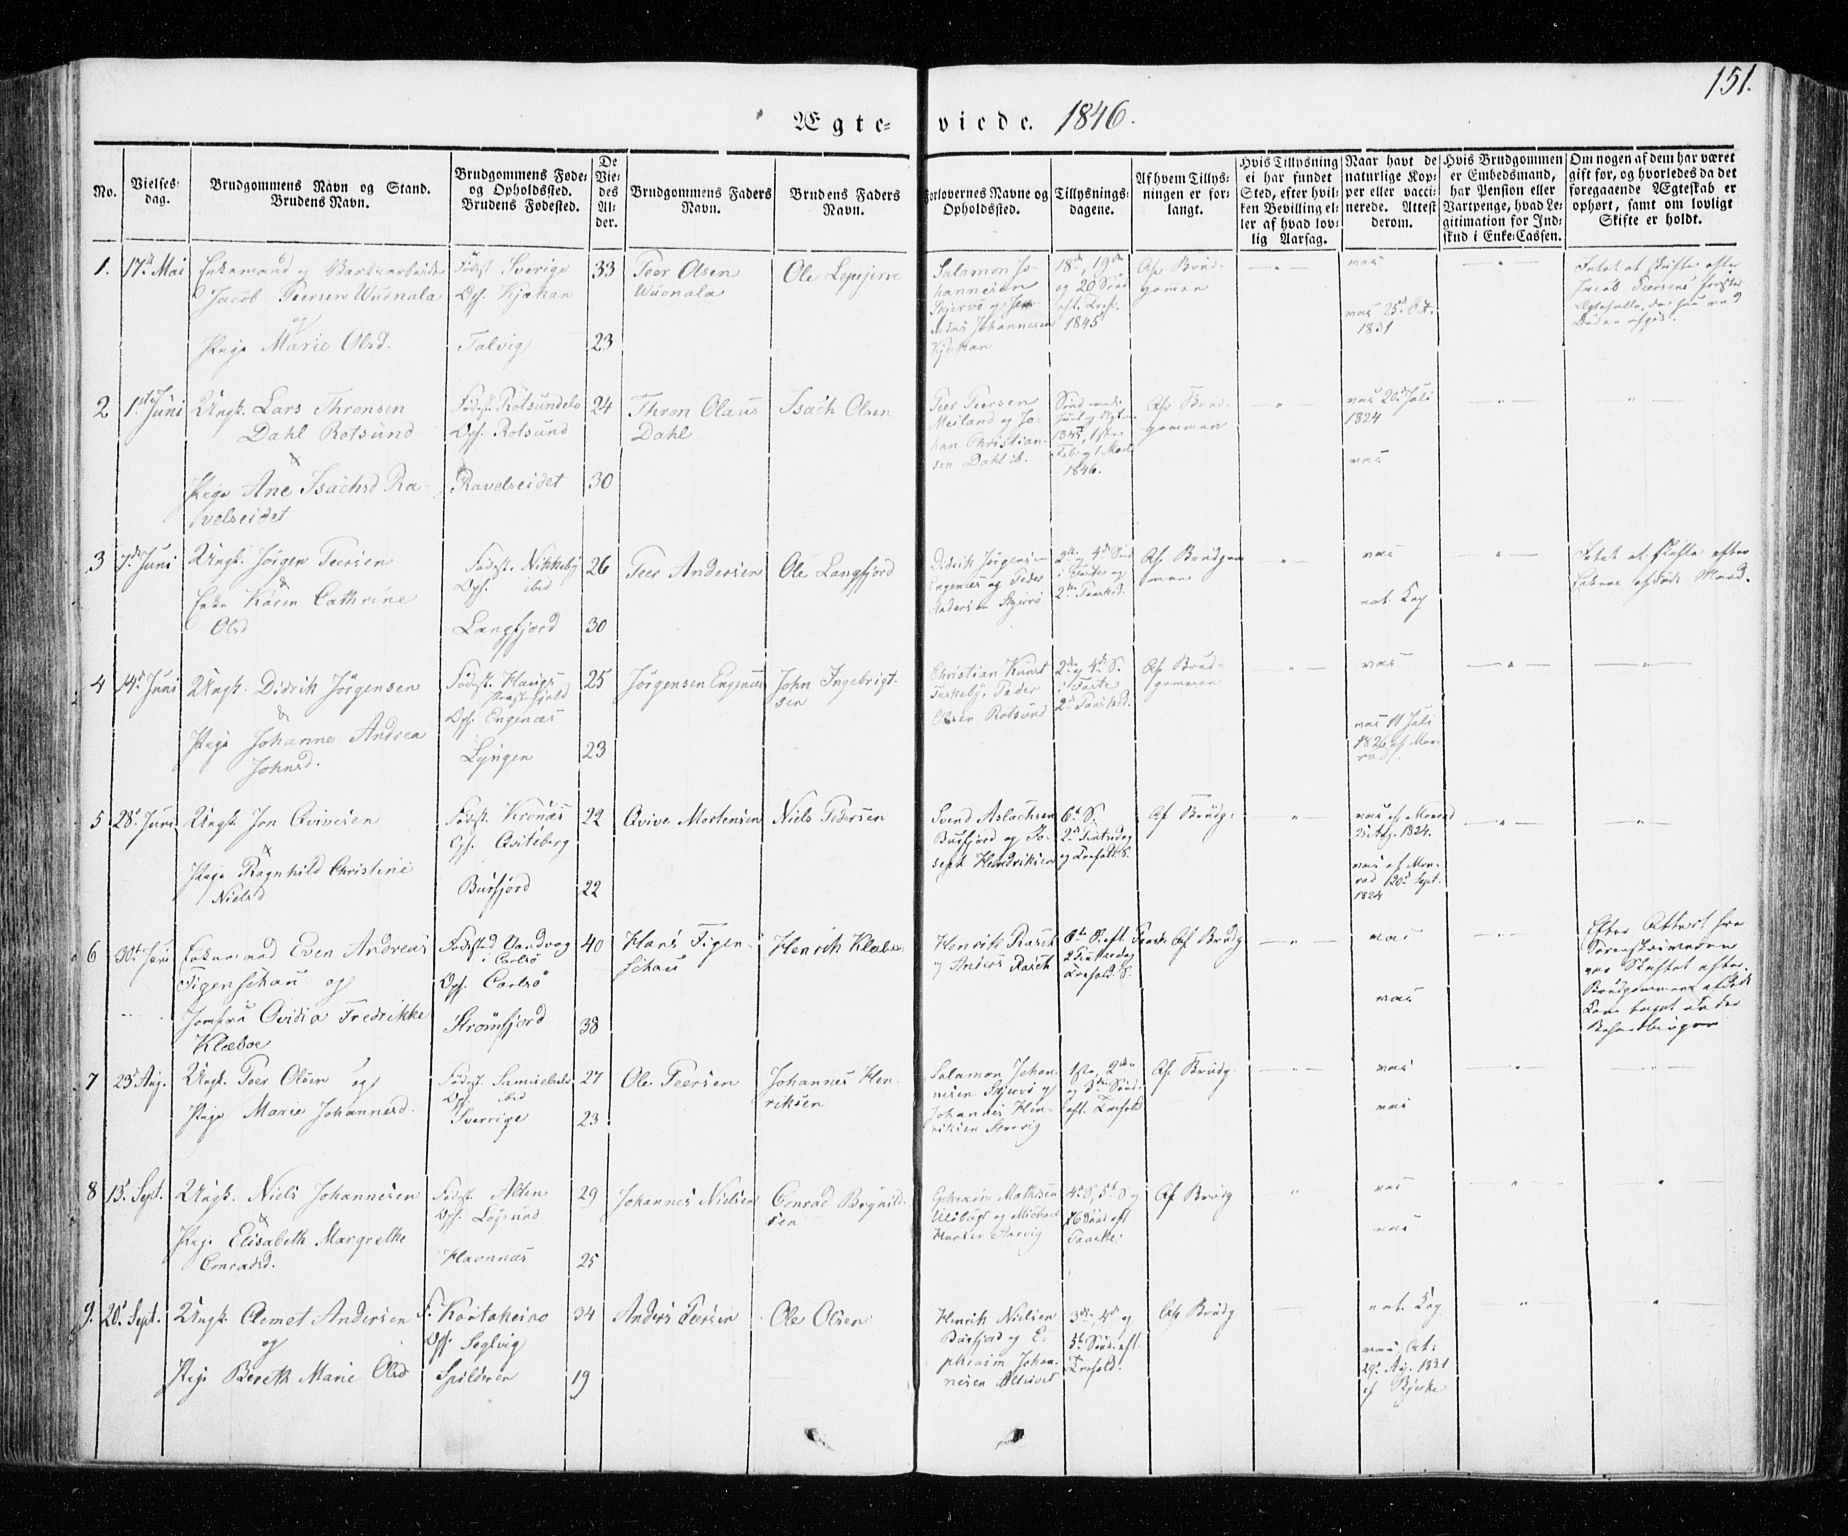 151.
Ægte- viede. 1846.
No.
Vielses-
dag.
Brudgommens Navn og Stand.
Brudens Navn.
Brudgommens Føde-
og Opholdssted.
Brudens Fødested.
De
Vie-
des
Al-
der.
Brudgommens Faders
Navn.
Brudens Faders
Navn.
Forlovernes Navne og
Opholdssted.
Tillysnings-
dagene.
Af hvem Tillys-
ningen er for-
langt.
Hvis Tillysning
ei har fundet
Sted, efter hvil-
ken Bevilling el-
ler af hvad lov-
lig Aarsag.
Naar havt de
naturlige Kop-
per eller vacci-
nerede. Attest
derom.
Hvis Brudgommen
er Embedsmand,
har Pension eller
Vartpenge, hvad Le-
gitimation for Ind-
skud i Enke-Cassen.
Om nogen af dem har været
gift før, og hvorledes da det
foregaaende Ægteskab er
ophørt, samt om lovligt
Skifte er holdt.
1. 17de Mai
Enkemand og
Jacob Peersen Wuonala
og
Pige Marie Olsd.
Fødest. Sverige
Ops. Kjækan
Talvig
33
23
Peer Olsen
Wuonala
Ole
Salamon Jo-
hannesen
Skjervø og
Johannesen
Kjækan
18de, 19de
og 20 Sønd
eft. Tref.
1845
Af Brud-
gomen
vac
vac 25de Oct.
1831
Intet at skifte efter
Jacob Peersens første
2 1ste Juni
Ungk. Lars Thronsen
Dahl Rotsund
&
Pige Ane Isachsd Ra-
velseidet
Fødest. Rotsundelv
Ops. Rotsund
Ravelseidet
24
30
Thron Olaus
Dahl
Isach Olsen
Peer Peersen
Meiland og Jo-
han Christian-
sen Dahl ib.
1845, 1ste
Feb. og 1 Marts
1846.
Af Brud-
gommen
vac 20de Juli
1824
vac
3 7de Juni
Ungk. Jørgen Peersen
&
Enke Karen Cathrine
Olsd
Fødest. Nikkeby
Ops. ibid
Langfjord
26
30
Peer Andersen
Ole Langfjord
Didrik Jørgensen
Engenæs og Peder
Andersen Skjervø
2de og 4de Sønd
i Faste og
2den Paaskd.
Af Brudgom
men
vac
nat. Kop
Intet at skifte efter
Enkens afdøde Mand.
4 14de Juni
Ungk. Didrik Jørgensen
&
Pige Johanne Andrea
Johnsd.
Fødest.
Ops. Engenæs
Lyngen
25
23
Jørgensen Engenæs
John Ingebrigt-
sen
Christian Kunst
Peder
Olsen Rotsund
2de og 4de S.
i Faste
2de Paaskd.
Af Brud-
gommen
vac
vac 11 Juli
1826 af Mon-
rad.
5 28de Juni
Ungk. Jon Qvivesen
&
Pige Ragnhild Christine
Nielsd
Fødest. Kronæs
Ops. Qviteberg
Burfjord
22
22
Qvive Mortensen
Niels Pedersen
Svend Aslachsen
Burfjord og Jo-
seph Hendriksen
6te S.
2den Pintsedag
og Trefold. S.
Af Brudg.
vac af Monrad
1824.
vac af Mon-
rad 20de Sept.
1824
6 30te Juni
Enkemand Even Andreas
Figenschau og
Jomfru Ovidia Fredrikke
Klæboe
Fødested Vandvog
i Carlsø
Ops. Carlsø
Strømfjord
40
38
Hans Figen-
schau
Henrik Klæboe
Henrik Rasch
og Anders Rasch
6te S. eft. Paaske
2 Pintsedag
Trefold. S.
Af Brudg
vac
vac
Efter Attest fra
Sorenskriveren
var Skiftet efter
Brudgommens afdøde
Kone taget under
Behandlingen
7 23de Aug.
Ungk. Peer Olsen og
Pige Marie Johannesd.
Fødest.
Ops. ibid
Sverrige
27
23
Ole Peersen
Johannes Hen-
riksen
Salamon Johan-
nesen Skjervø og
Johannes Hen-
riksen
1ste, 2den
og 3de Sønd.
eft. Trefold
Af Brudg.
vac
vac
8 13de Sept.
Ungk. Niels Johannesen
&
Pige Elisabeth Margrethe
Conradsd.
Fødst. Alten
Ops. Løgsund
Havnnæs
29
25
Johannes Nielsen
Conrad
Ephraim Mathisen
og Michael
4de S, 5te S og
6 Sønd eft
Paaske.
Af Brudg
vac
vac
9. 20de Sept.
Ungk. Clemet Andersen
og
Pige Bereth Marie Olsd
F. Koutokeino
Ops. Seglvig
Spilderen
34
19
Anders Peersen
Ole Olsen
Henrik Nielsen
Burfjord og E-
phraim Johan-
nesen
3de, 4de og
5te Sønd. eft.
Trefold.
Af Brudg
nat. Kop
vac, At.
29de Aug. 1831
af Bjerke